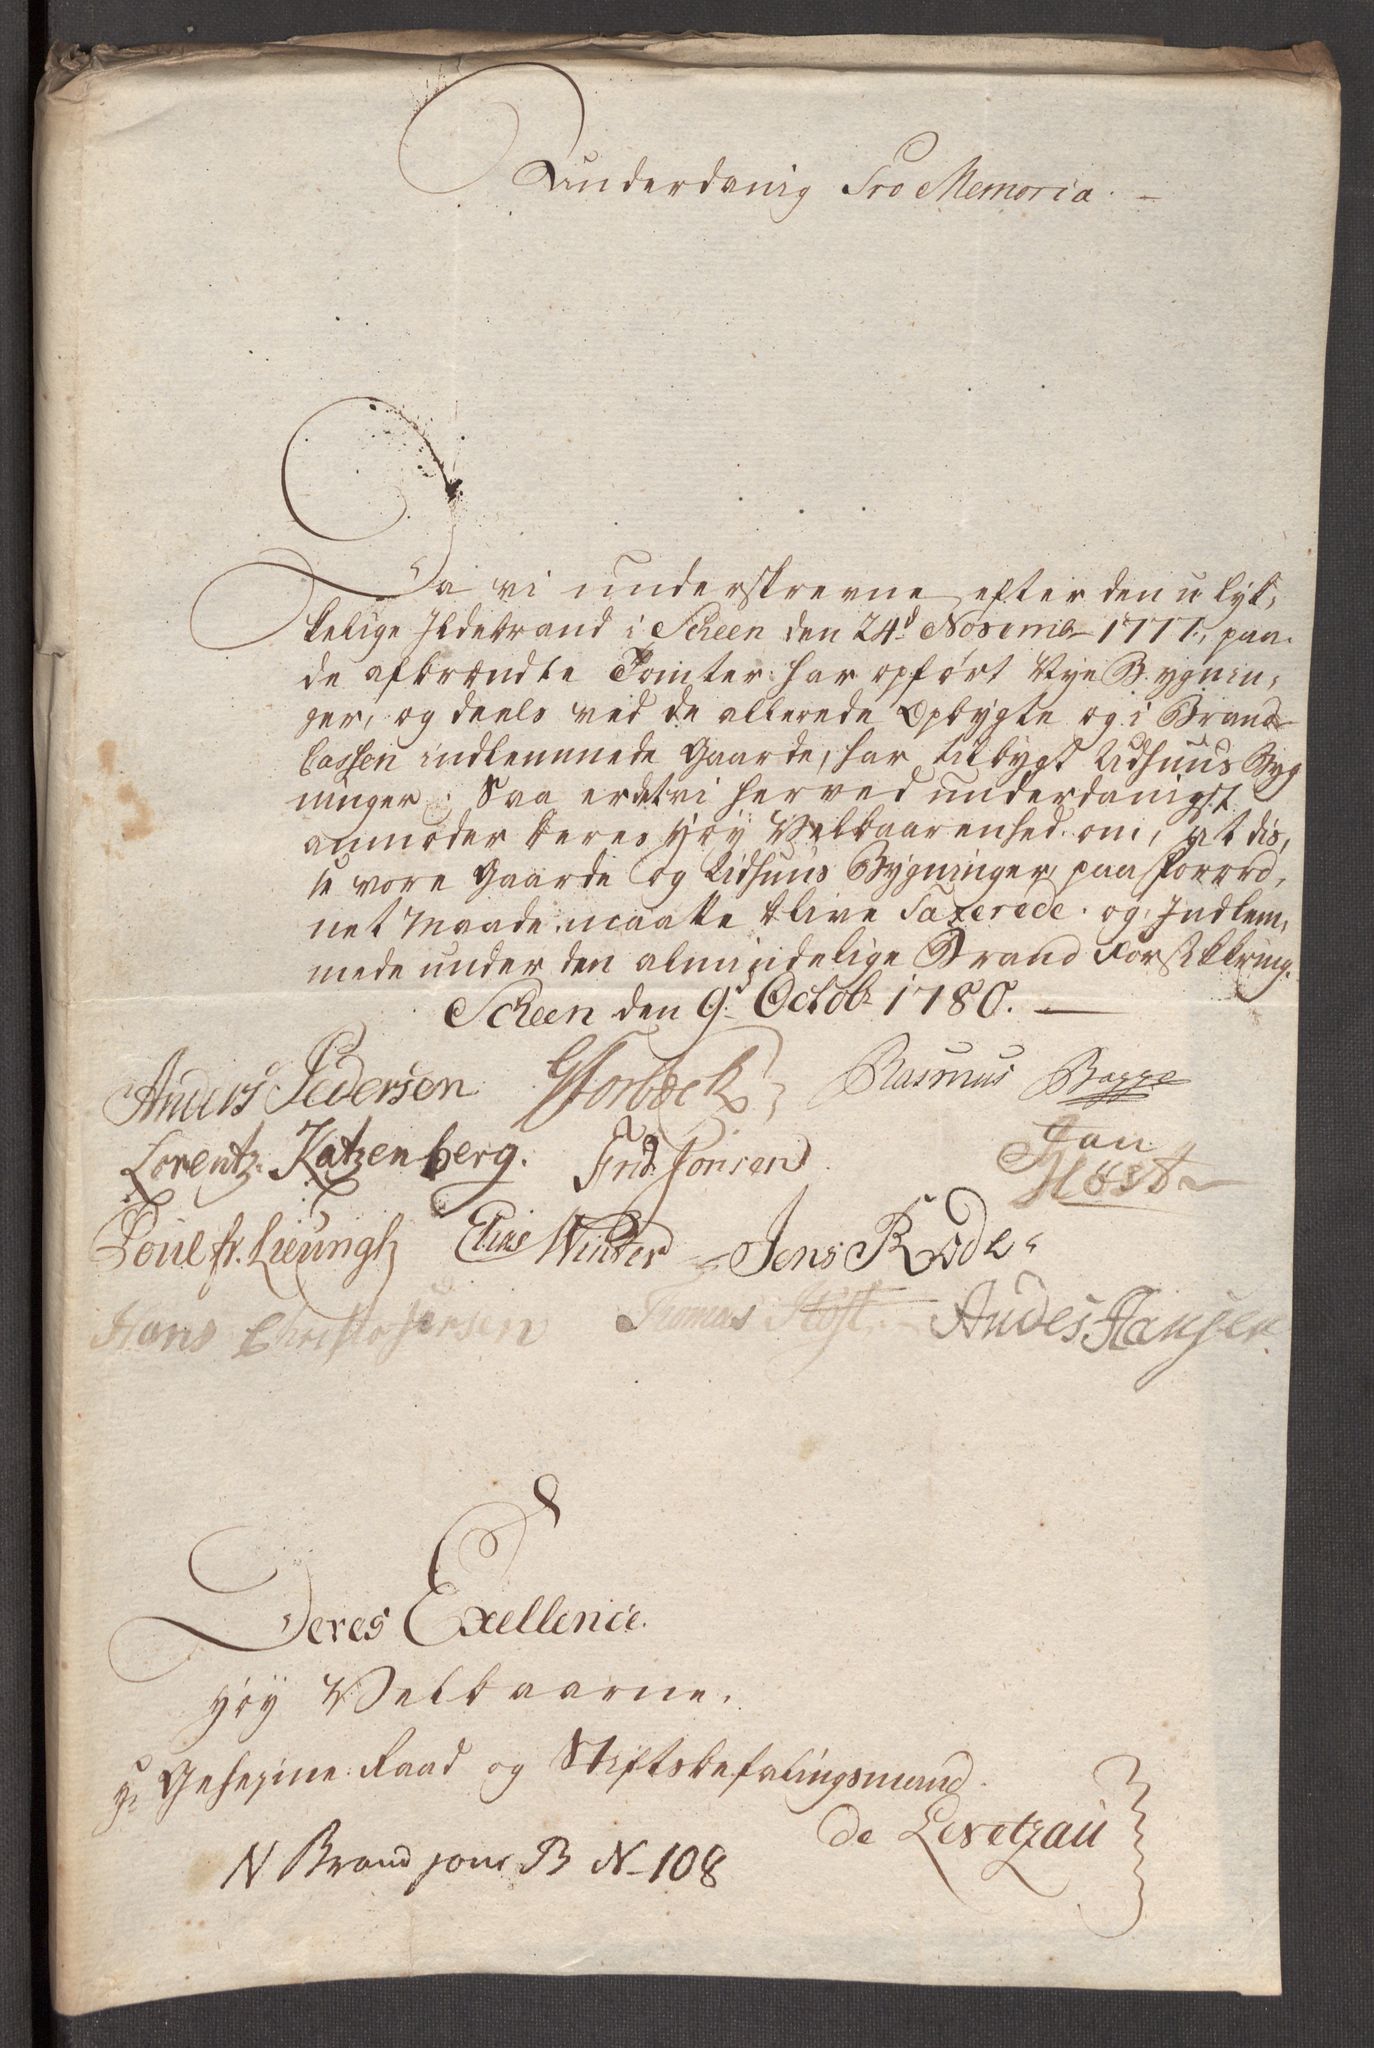 Underdanig Pro Memoria. –
Da vi underskrevne efter den ulyk,
kelige Ildebrand i Scheen den 24.d Novemb 1777., paa
de afbrændte Tomter har opført Nye Bygnin,
ger, og deels ved de allerede Opbygte og i Brand
Cassen indlemmede Gaarde, har tilbygt Udhuus Byg
ninger; Saa er det vi herved underdanigst
anmoder deres Høy Velbaarenhed om, at dis,
se vore Gaarde og Udhuus Bygninger paa forord,
net Maade maatte blive Taxerede og Indlem,
mede under den almindelige Brand Forsikkring.
Scheen den 9.d Octobr 1780. —
Anders Pedersen GForbech Rasmus Bagge
Lorentz Katzenberg. Frid Jonsen Jan
Høst
Poul fr. Lieungh Elias Winter Jens Rode
Hans Christophersen Thomas Høst. Andes Hansen
Deres Exellence.
Høy Velbaarne.
Hr Geheime Raad og Stiftsbefalingsmand
de Levetzau
N Brand jour B No 108